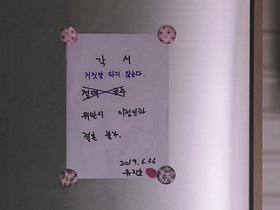 각 서
거짓말 하지 않는다.
절대 금주
위반시 이정인과
결혼 불가.
2019. 6. 26
유지호